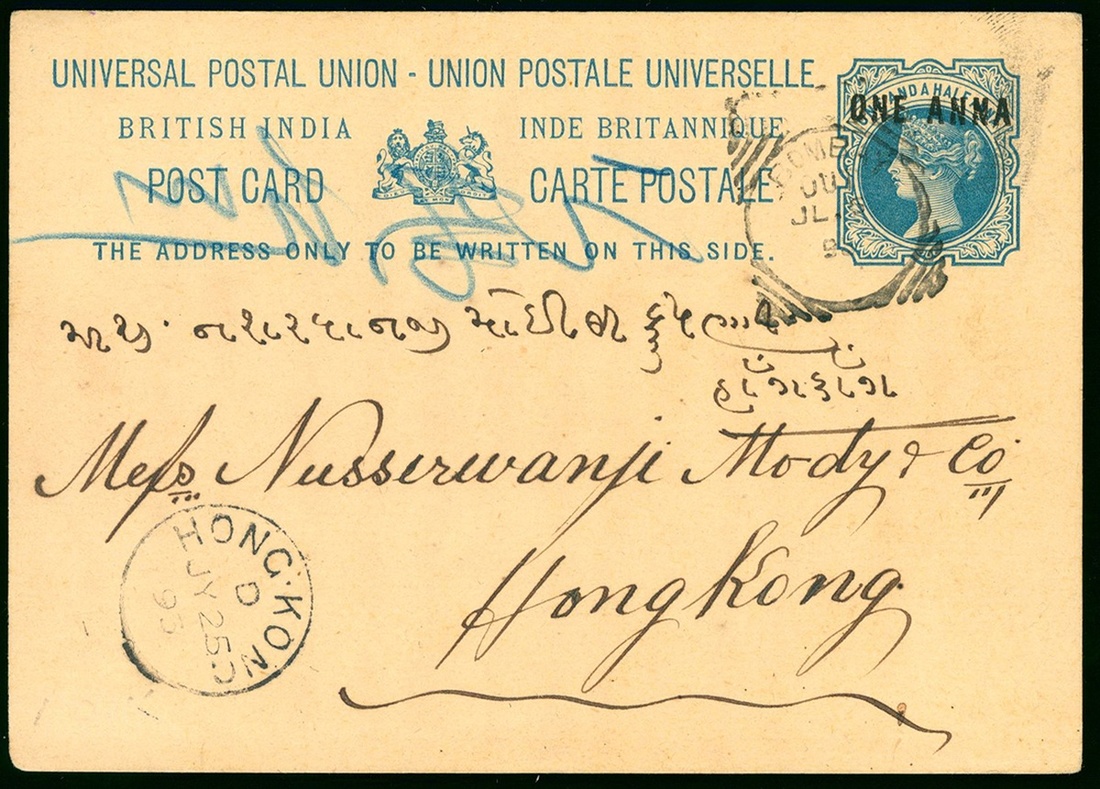 UNIVERSAL POSTAL UNION - UNION POSTALE UNIVERSELLE
BRITISH INDIA INDE BRITANNIQUE
POST CARD CARTE POSTALE
THE ADDRESS ONLY TO BE WRITTEN ON THIS SIDE.
AND A HALF
ONE ANNA
BOMBAY
OU
JL
નશરવાનજી
હાંગકાંગ
Mess Nusserwanji Mody & Co
Hong Kong.
HONG·KONG
D
JY 25
95